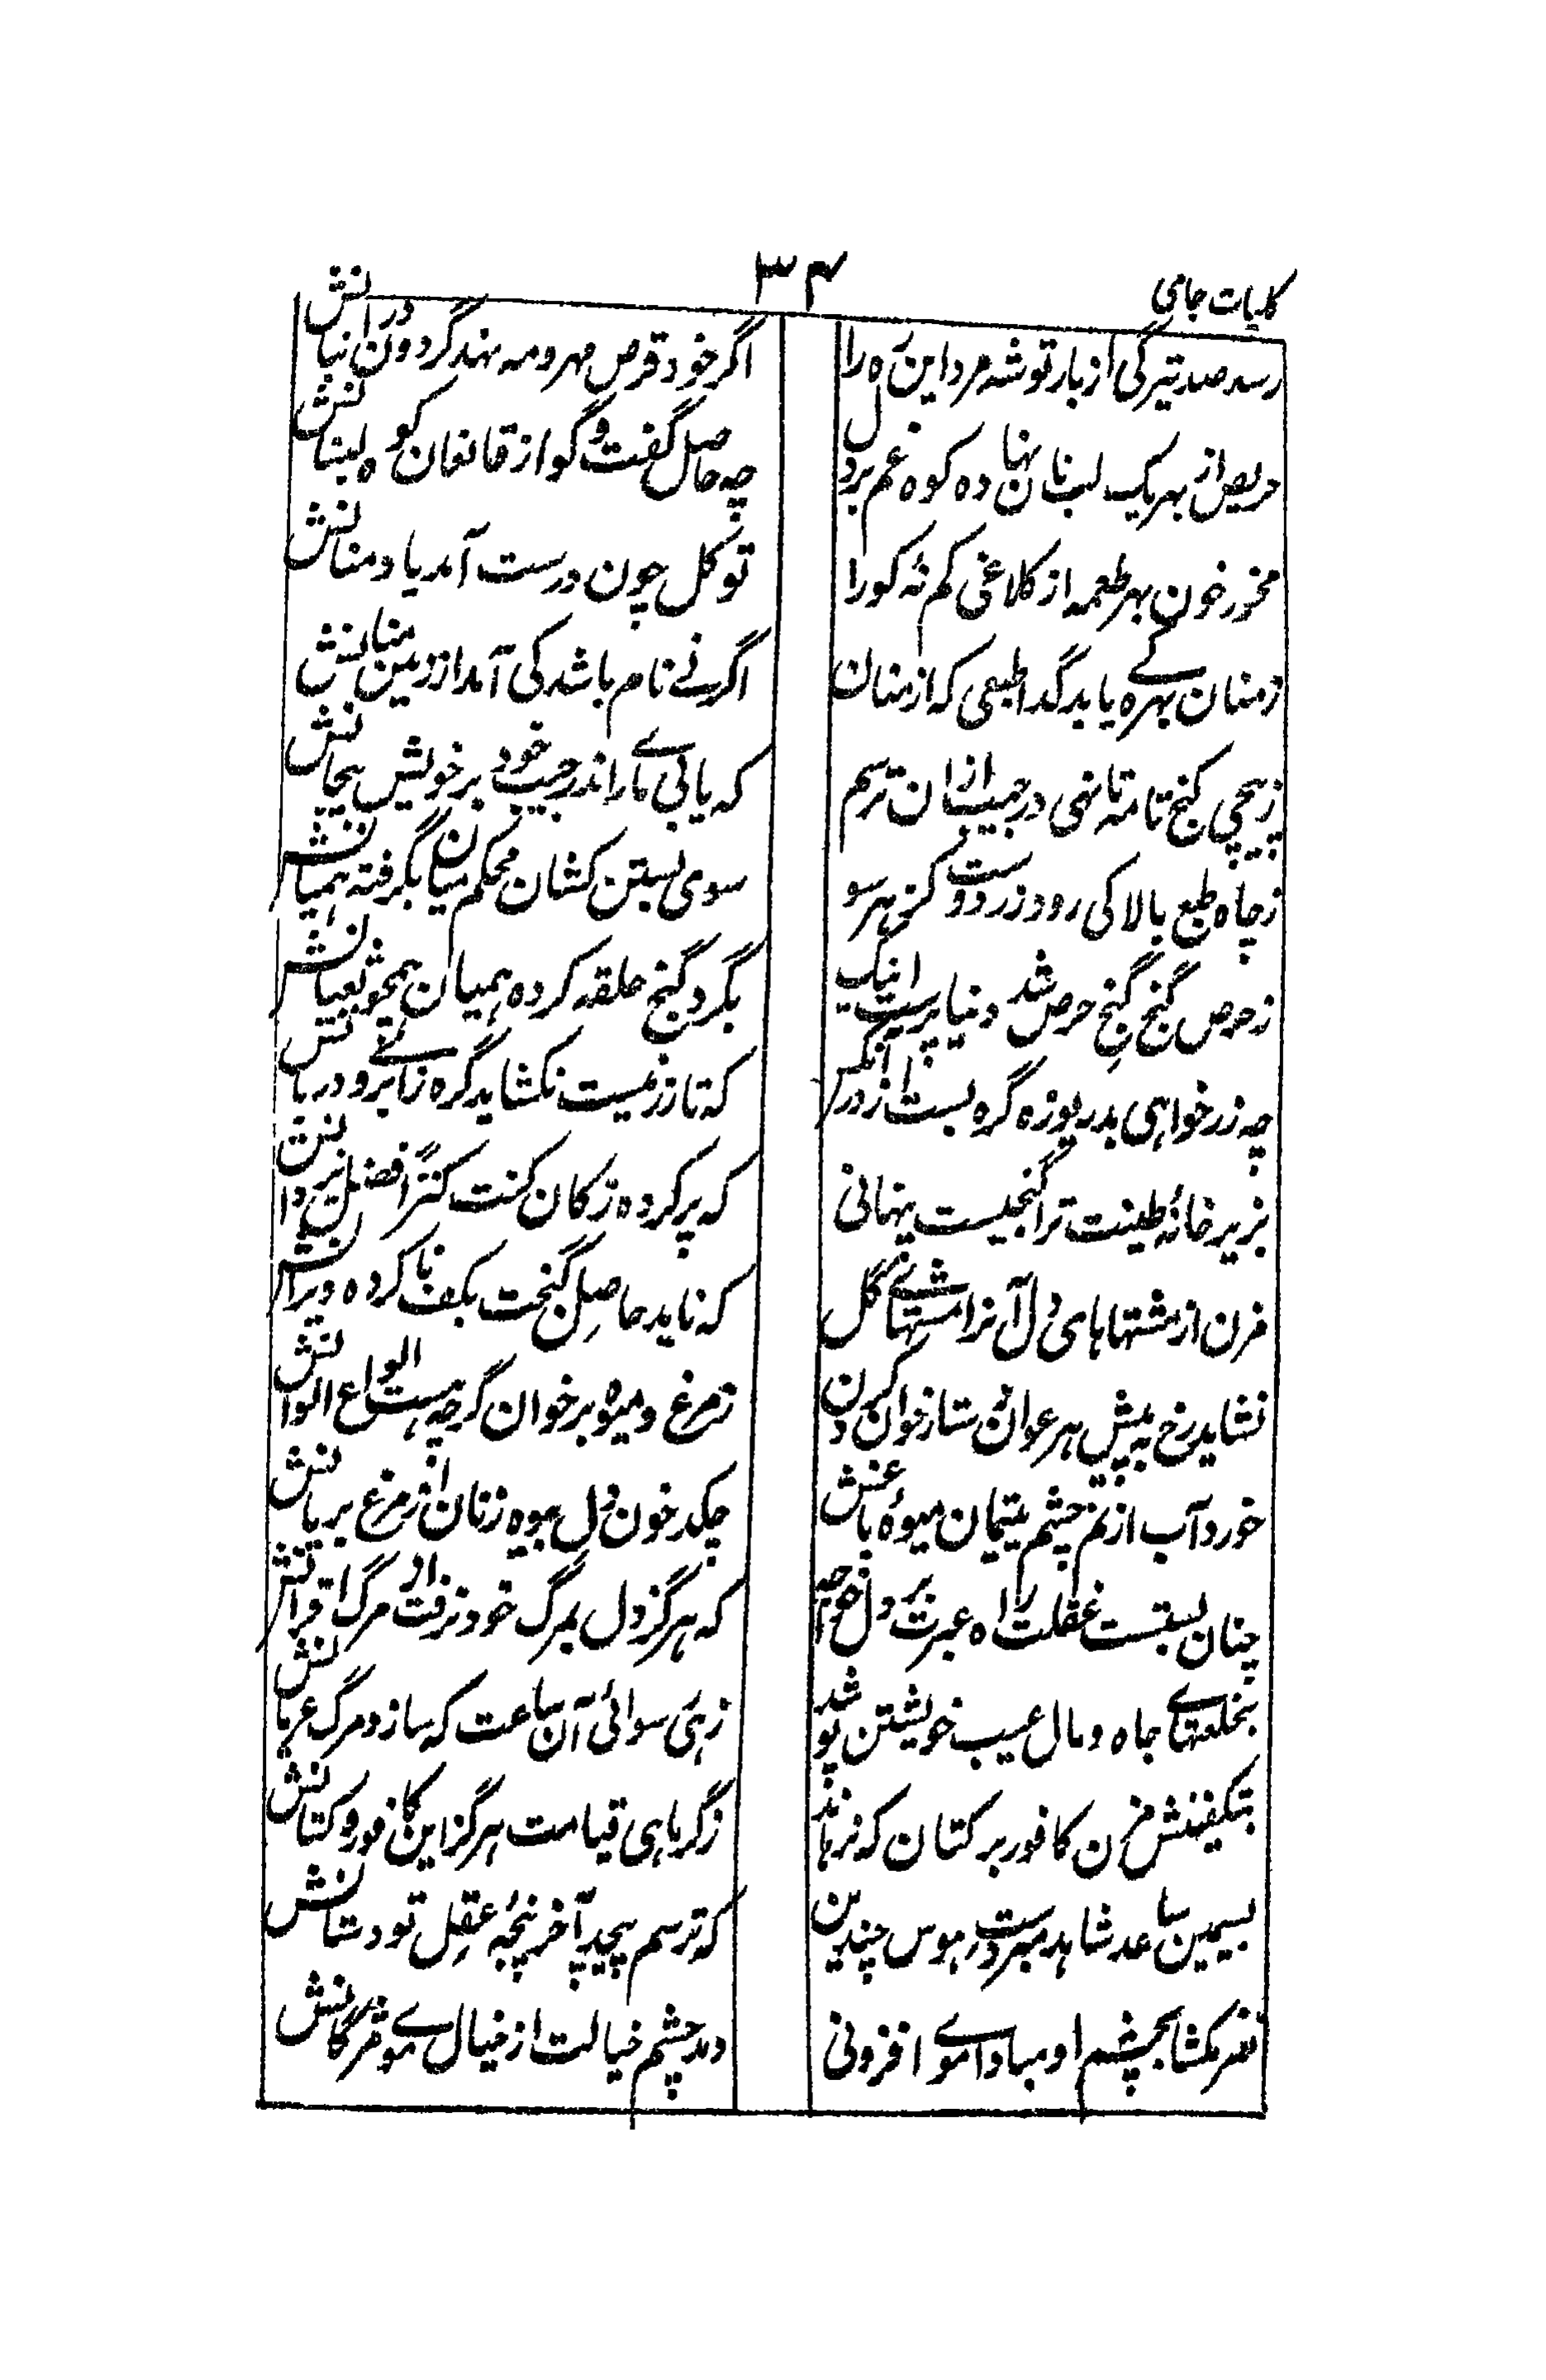 کلیات جامی
۳۴
رسد صد تیرگی از بار توشه مرد این ره را
اگر خود قرص مهر و مه نهد گردون در انبانش
حریص از بهر یک لب نان نهاده کوه غم بر دل
چه حاصل گفت و گو از قانعان کوه لبنانش
مخور خون بهر طعمه از کلاغی کم نهٔ کورا
توکل چون درست آمد یا دمنانش
ز منان بهرهٔ کے یابد گدا طبعی که از منان
اگر نے نام باشد کی آمد از زمین منانش
ز پیچی کنج تا مه تا نهی در جیب ازان ترسم
که یابی مارے اندر جیب خود بر خویش پیچانش
ز چاه طبع بالا کی رود زر دوست کز هر سو
سوی بستن کشان محکم میان بگرفته همیانش
ز حرص گنج گنجِ حرص شد دنیا پرست اینک
بگرد گنج حلقه کرده همیان همچو ثعبانش
چه زر خواهی بدریوزه گره بست از در آنکس
که تا زر نیست نکشاید گره ز ابرو دربانش
بزیر خانهٔ طینت ترا گنجیست پنهانی
که پر کرده ز کان کنت کنزًا فضل یزدانش
مزن از مشتهاهای دل آنرا مشتهائے گل
که ناید حاصلِ گنجت بکف ناکرده ویرانش
نشاید رخ به پیش هر عوانی ستاز خوان کردن
ز مرغ و میوه بر خوان گرچه هست الواع الوانش
خورد آب از نم چشم یتیمان میوهٔ باغش
چکد خون دل بیوه زنان از مرغ بریانش
چنان بستست غفلت راه عبرت بر دل خواجه
که هرگز دل بمرگ خود نرفت از مرگ اقرانش
بخلعتهاے جاه و مال عیب خویشتن پوشد
زهی رسوائی آن ساعت که سازد مرگ عریانش
بتکفینش مزن کافور بر کتان که نرهاند
ز گرماهی قیامت هرگز این کافور و کتانش
بسیمین ساعد شاهد مبر دست هوس چندین
که ترسم پیچد آخر پنجهٔ عقلِ تو دستانش
نظر مکشا بچشم او مبادا موے افزونی
دمد چشم خیالت از خیال موے مژگانش